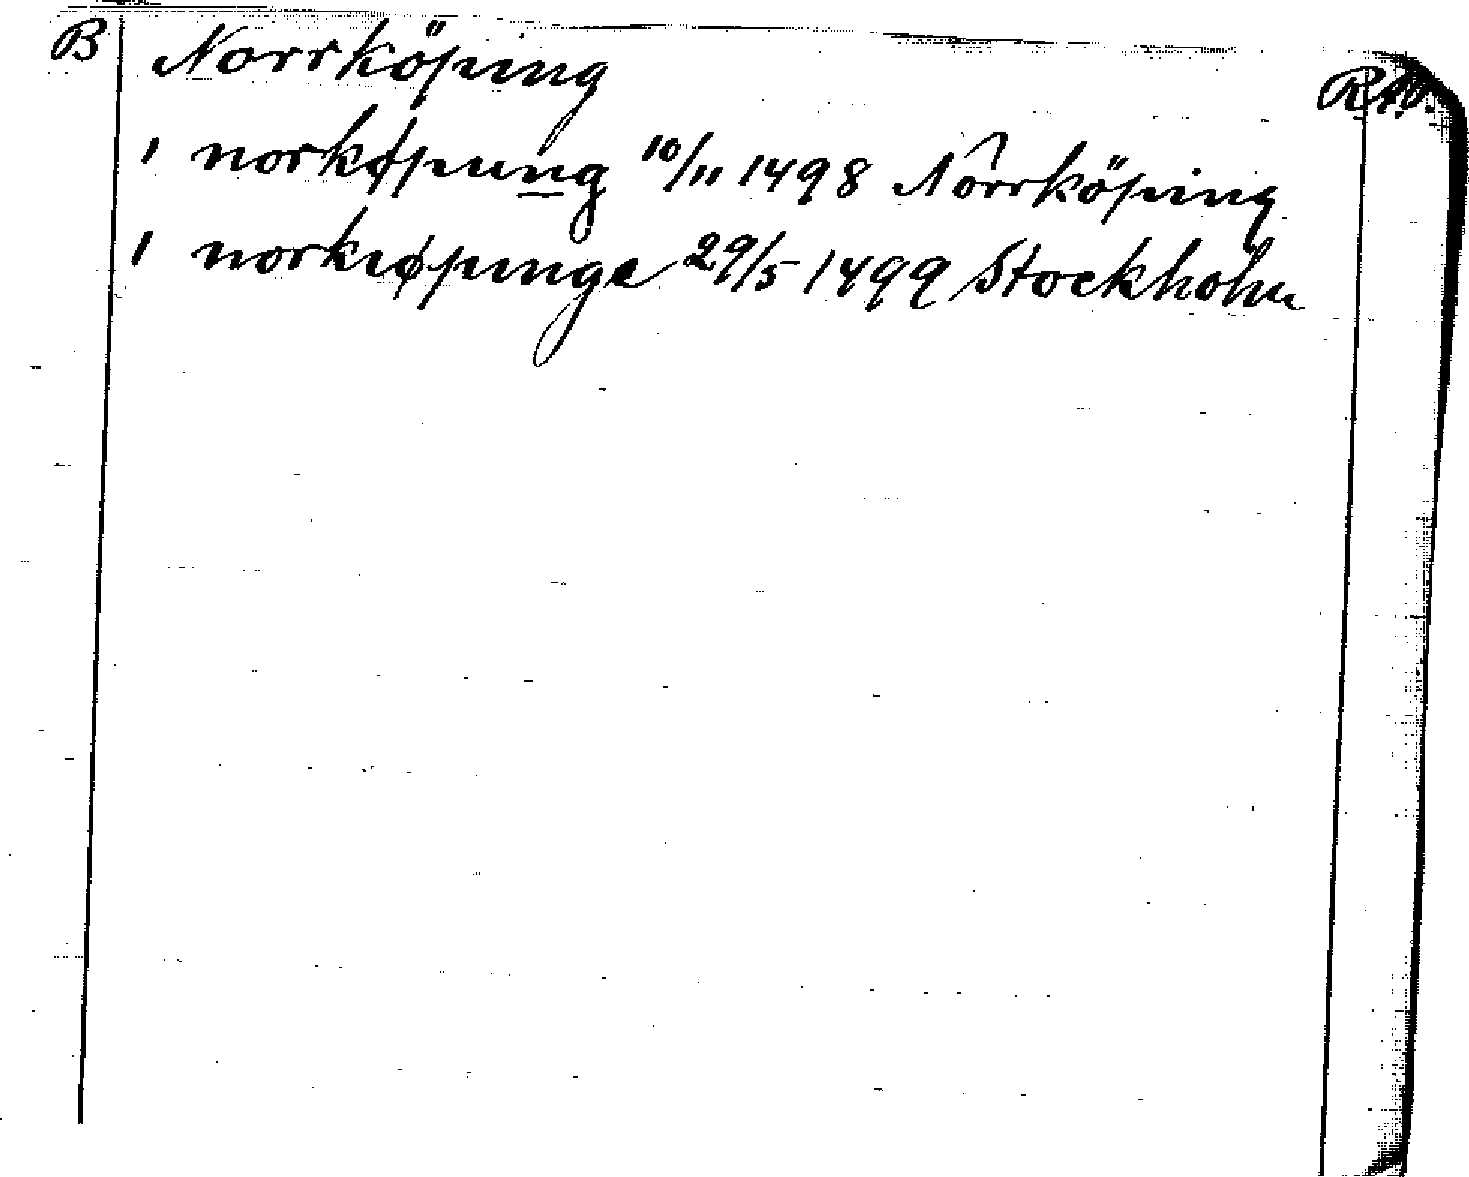 B Norrköping RAO.
i norkøping 10/11 1498 Norrköping
i norkiøpinge 29/5 1499 Stockholm